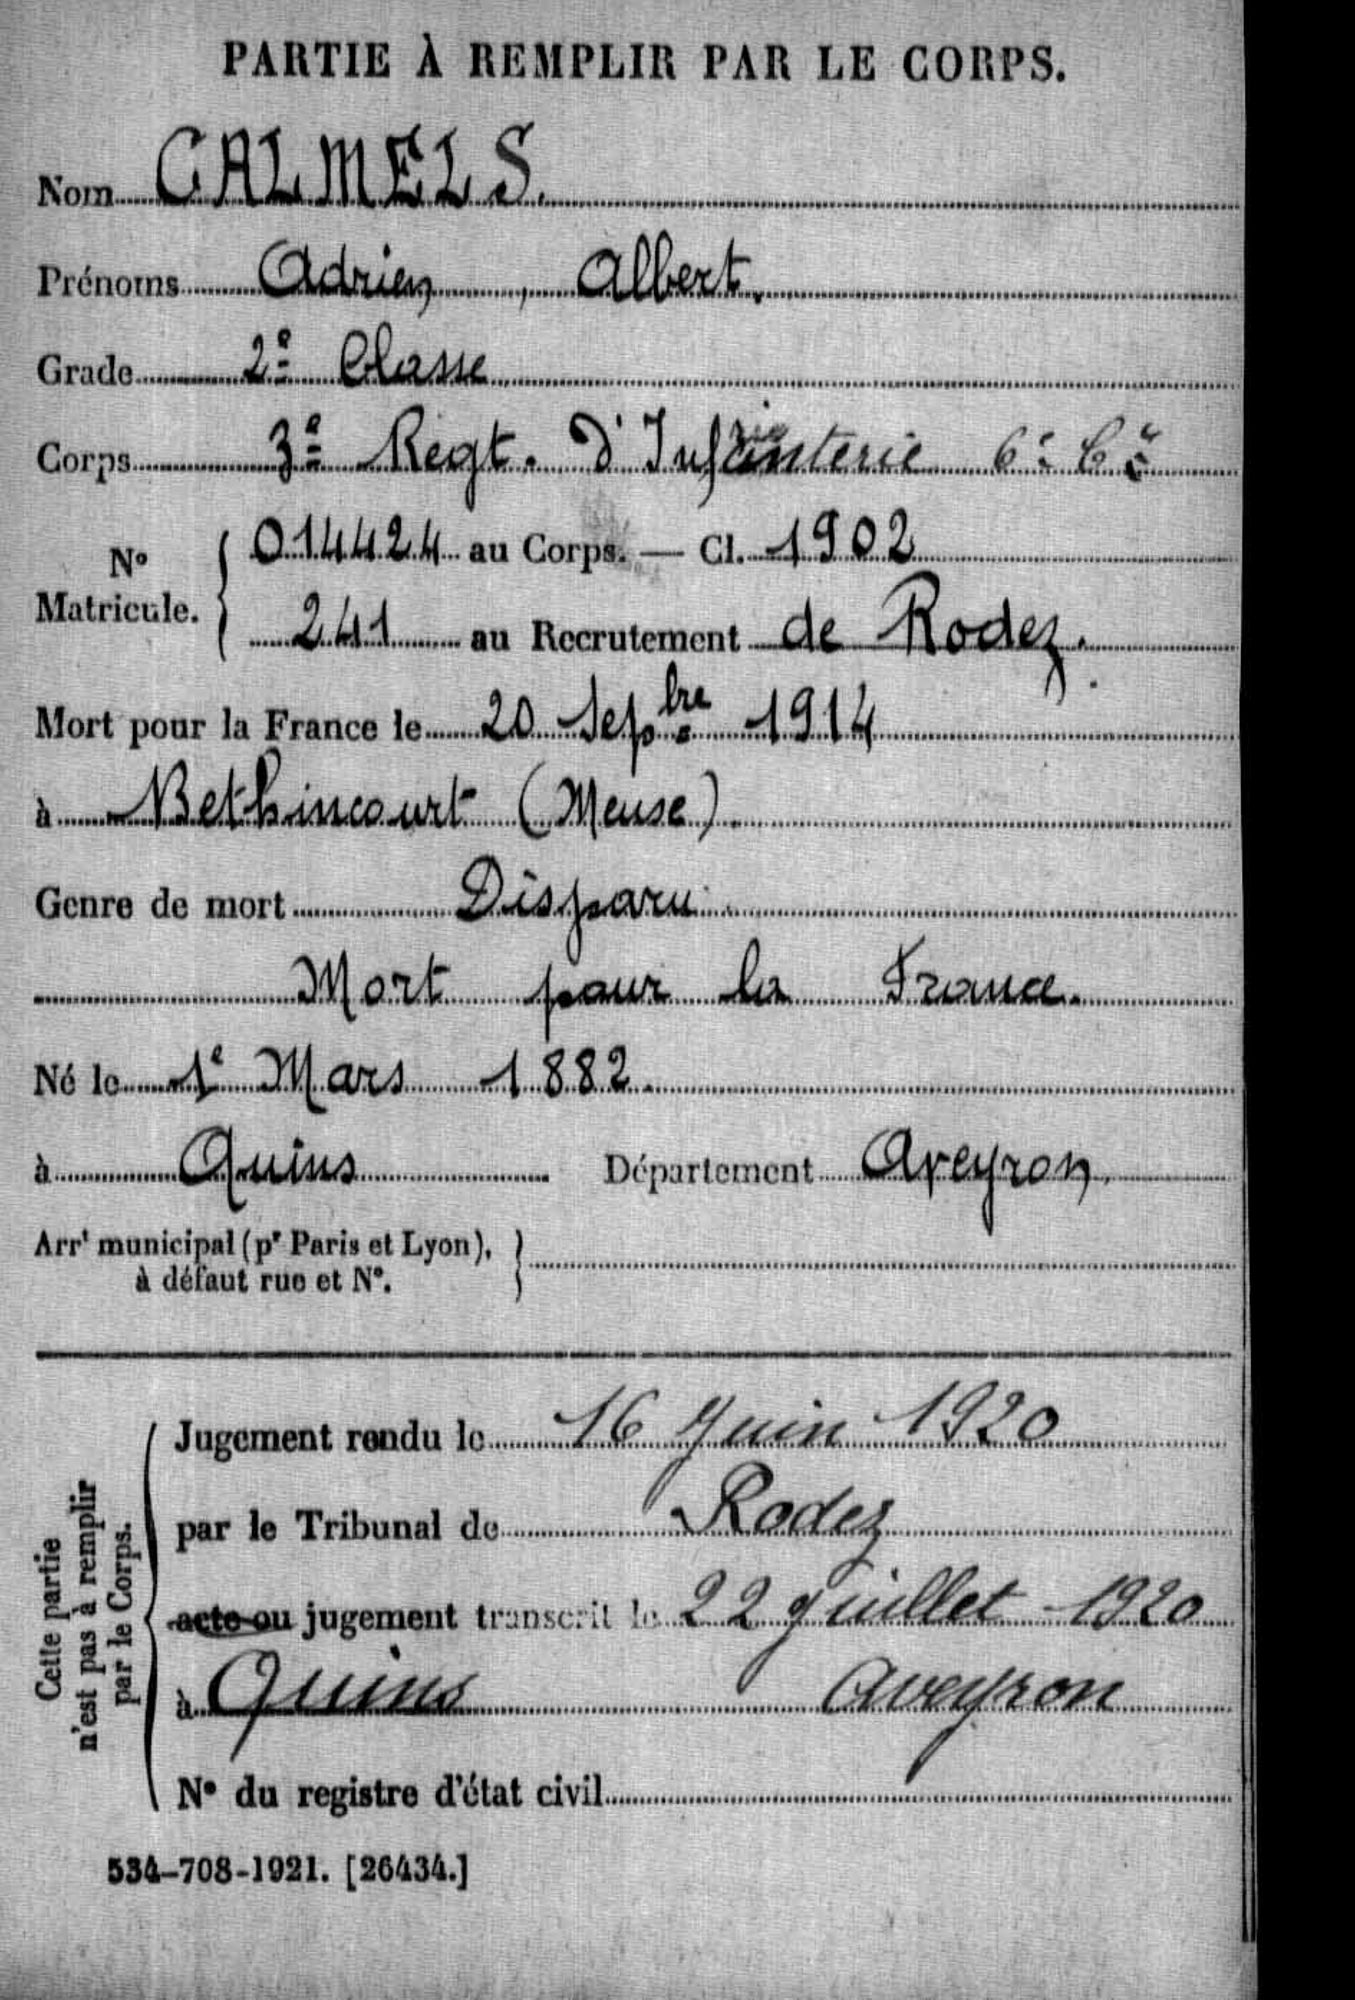 PARTIE À REMPLIR PAR LE CORPS.
Nom CALMELS.
Prénoms Adrien, Albert.
Grade 2e Classe
Corps 3e Regt. d'Infanterie 6e Cie
No Matricule. { 014424 au Corps. — Cl. 1902
241 au Recrutement de Rodez.
Mort pour la France le 20 Sepbre 1914
à Bethincourt (Meuse)
Genre de mort Disparu
Mort pour la France.
Né le 1e Mars 1882
à Quins Département Aveyron
Arrt municipal (pr Paris et Lyon), à défaut rue et No. }
Cette partie n'est pas à remplir par le Corps.
Jugement rendu le 16 Juin 1920
par le Tribunal de Rodez
acte ou jugement transcrit le 22 Juillet 1920
à Quins Aveyron
No du registre d'état civil
534-708-1921. [26434.]